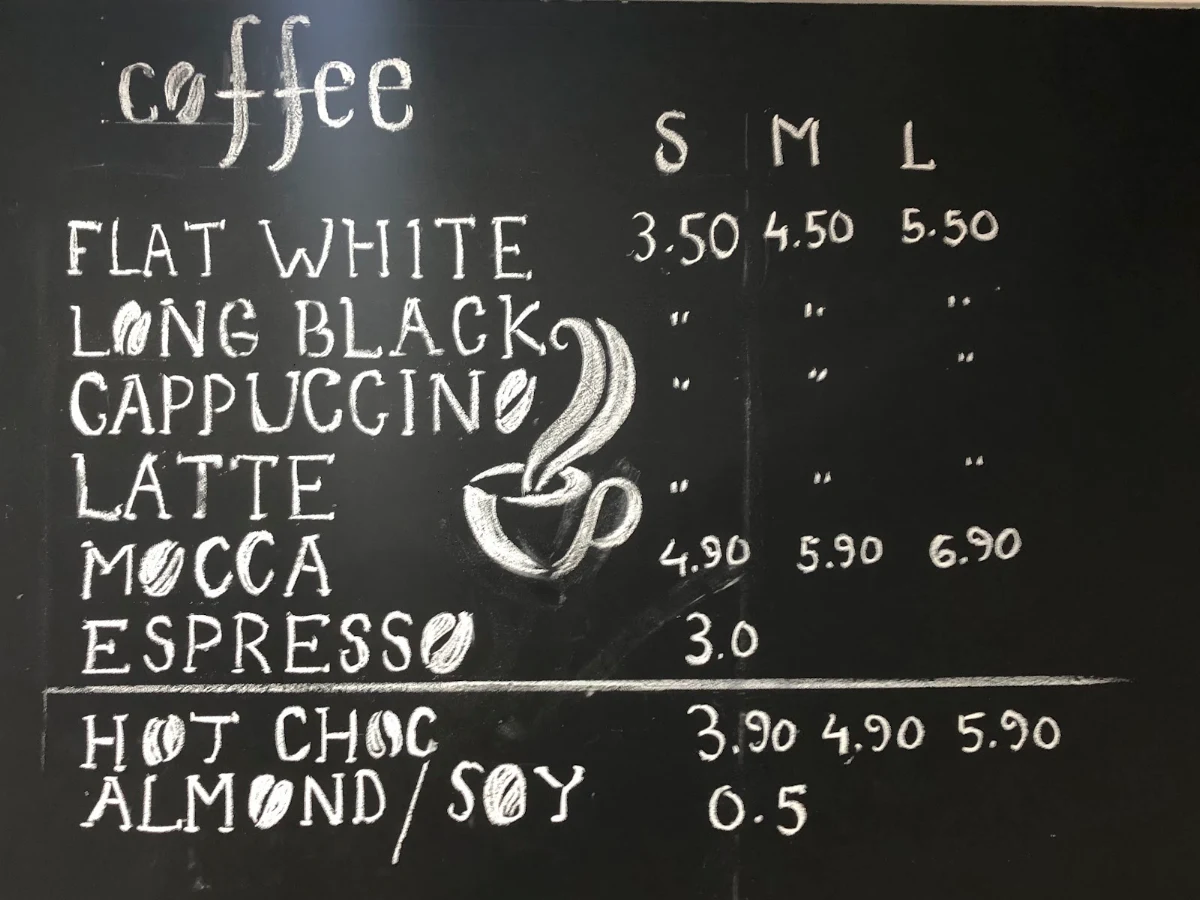 coffee
S M L
FLAT WHITE 3.50 4.50 5.50
LONG BLACK " " "
CAPPUCCINO " " "
LATTE " " "
MOCCA 4.90 5.90 6.90
ESPRESSO 3.0
HOT CHOC 3.90 4.90 5.90
ALMOND/SOY 0.5